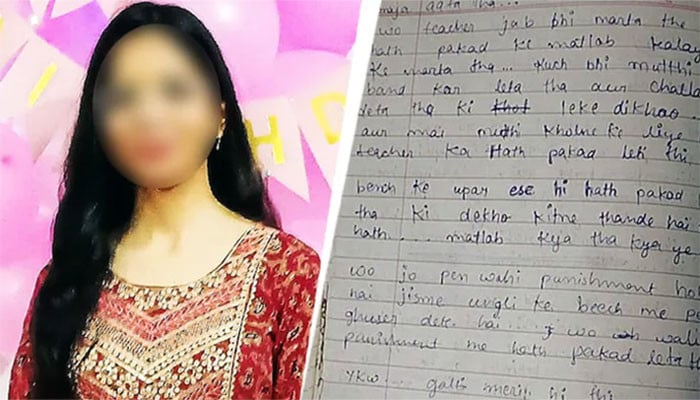 maja aata tha..
wo teacher jab bhi marta the
hath pakad ke matlab kalay
ke marta tha... Kuch bhi mutthi
band kar leta tha aur challa
deta tha ki leke dikhao
aur mai muthi kholne ke liye
teacher ka Hath pakad leti thi
bench ke upar ese hi hath pakad
tha ki dekho kitne thande hai
hath.... matlab kya tha kya ye
wo jo pen wahi punishment
hai jisme ungli ke beech me
ghuser dete hai... wo wali
punishment me hath pakad leta
YKW... galti meri hi thi